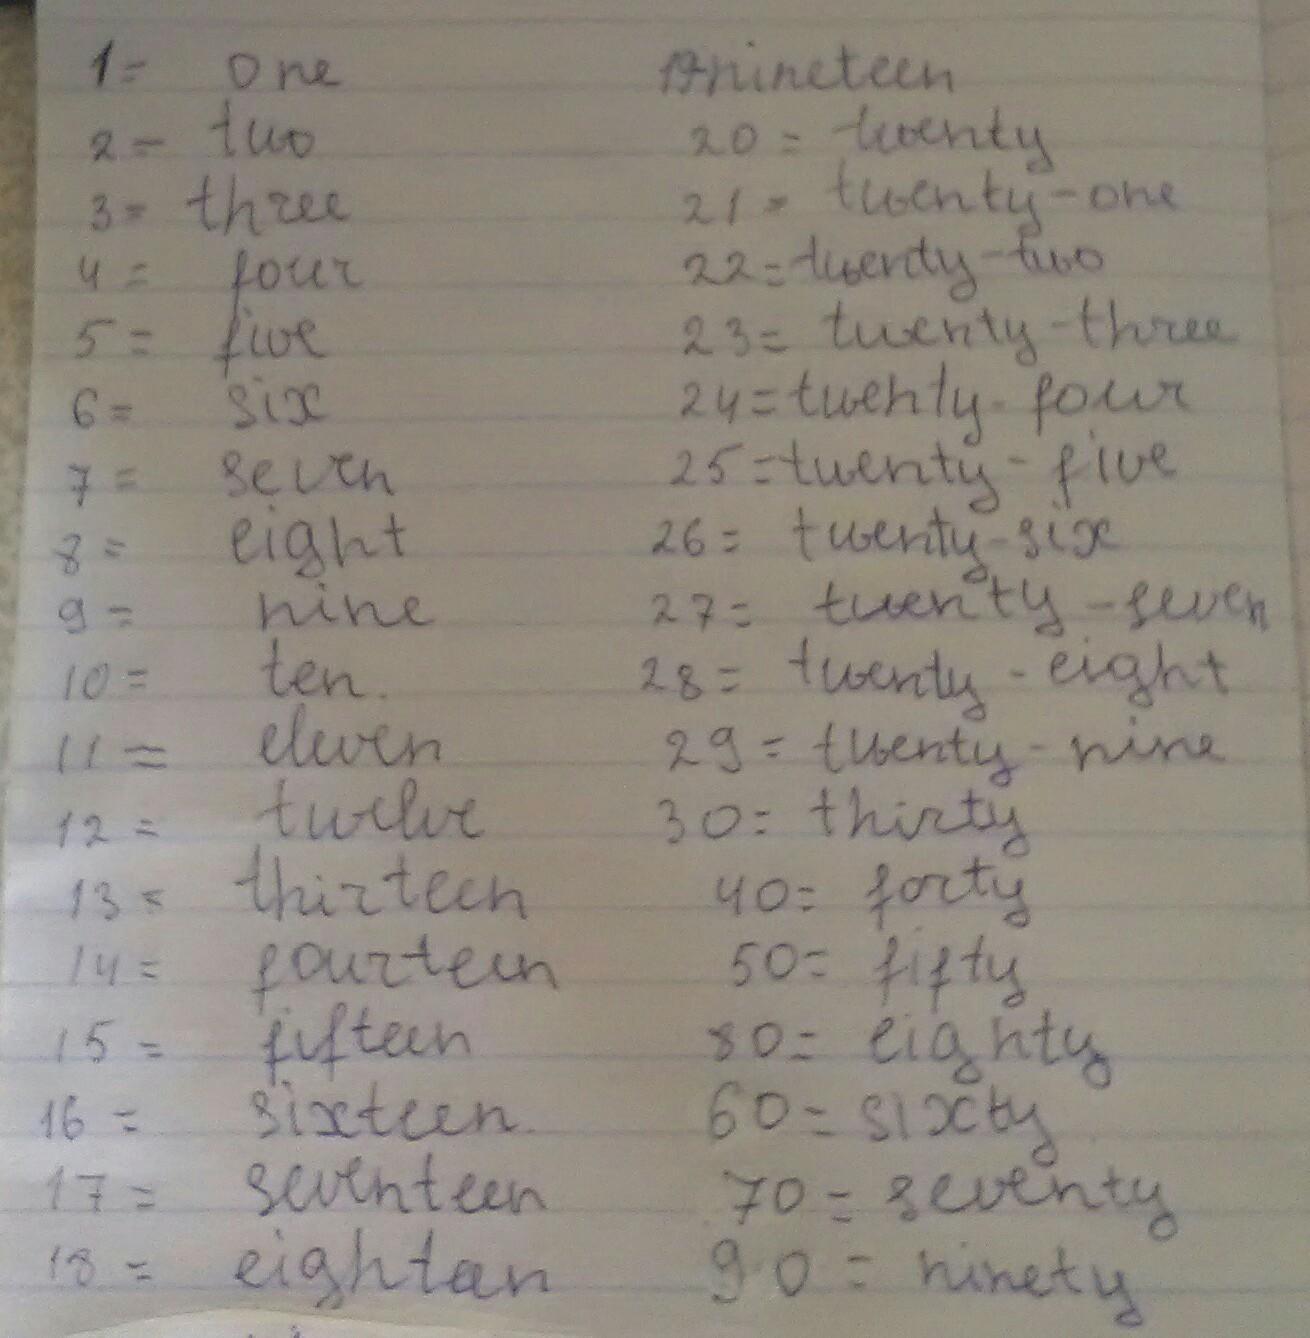 1= one
2= two
3= three
4= four
5= five
6= six
7= seven
8= eight
9= nine
10= ten.
11= eleven
12= twelve
13= thirteen
14= fourteen
15= fifteen
16= sixteen.
17= seventeen
18= eighteen
19=nineteen
20= twenty
21= twenty-one
22=twenty-two
23= twenty-three
24=twenty-four
25=twenty-five
26= twenty-six
27= twenty-seven
28= twenty-eight
29= twenty-nine
30= thirty
40= forty
50= fifty
80= eighty
60= sixty
70= seventy
90= ninety